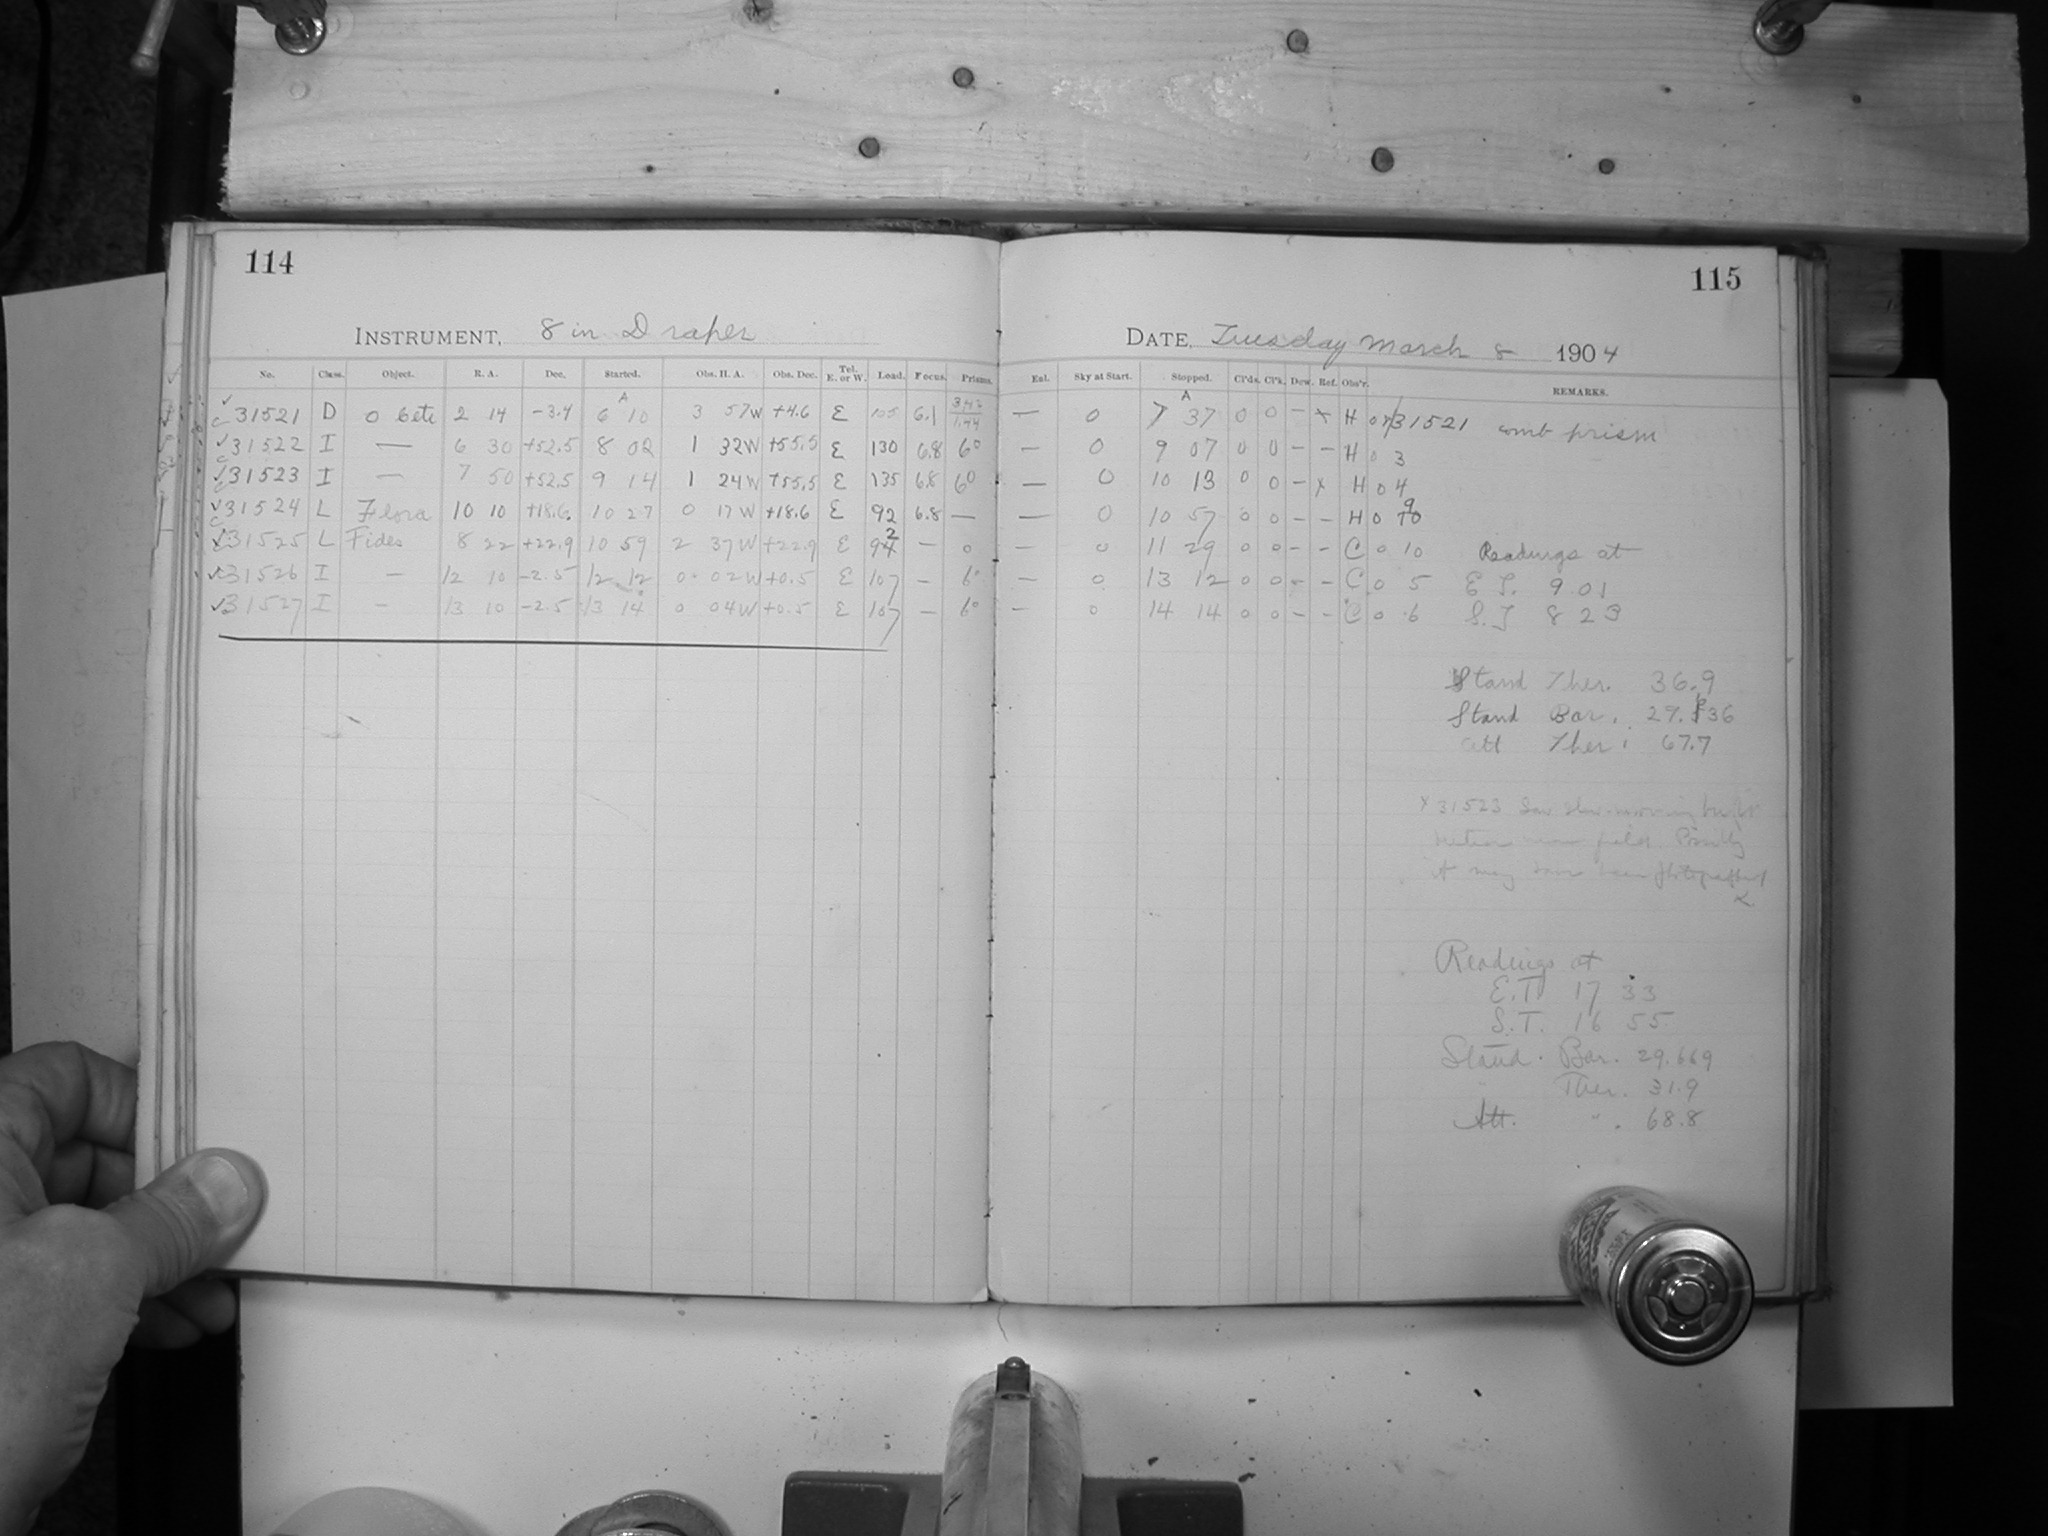 114
INSTRUMENT, 8 in Draper
No. Class. Object. R. A. Dec. Started. Obs. H. A. Obs. Dec. Tel. E. or W. Load. Focus. Prisms.
31521 D o Ceti 2 14 -3.4 6 10 3 57W +4.6 E 105 6.1
31522 I — 6 30 +52.5 8 02 1 32W +55.5 E 130 6.8 6°
31523 I — 7 50 +52.5 9 14 1 24W +55.5 E 135 6.8 6°
31524 L Flora 10 10 +18.6 10 27 0 17W +18.6 E 92 6.8 —
31525 L Fides 8 22 +22.9 10 59 2 37W +22.9 E 92 — 0
31526 I — 12 10 -2.5 12 12 0 02W +0.5 E 107 — 6°
31527 I — 13 10 -2.5 13 14 0 04W +0.5 E 107 — 6°
115
DATE, Tuesday March 8 1904
Enl. Sky at Start. Stopped. Cl'ds. Cl'k. Dew. Ref. Obs'r. REMARKS.
— 0 7 37 0 0 – x H 31521 comb prism
— 0 9 07 0 0 – – H 0 3
— 0 10 13 0 0 – x H 0 4
— 0 10 57 0 0 – – H 0 9
— 0 11 29 0 0 – – C 0 10 Readings at
— 0 13 12 0 0 – – C 0 5 E.T. 9 01
— 0 14 14 0 0 – – C 0 6 S.T. 8 23
Stand Ther. 36.9
Stand Bar. 29.36
Att Ther. 67.7
x 31523 Saw slow-moving
near field. Possibly
it may have been
Readings at
E.T. 17 33
S.T. 16 55
Stand. Bar. 29.669
Ther. 31.9
Att. " 68.8